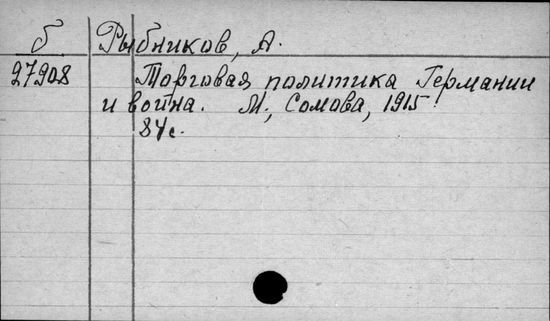 Б Рыбников, А.
27908 Торговая политика Германии
и война. М., Сомова, 1915.
84 с.